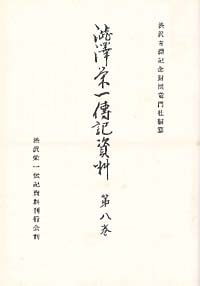 渋沢青淵記念財団竜門社編纂
澁澤榮一傳記資料
第八巻
渋沢栄一伝記資料刊行会刊